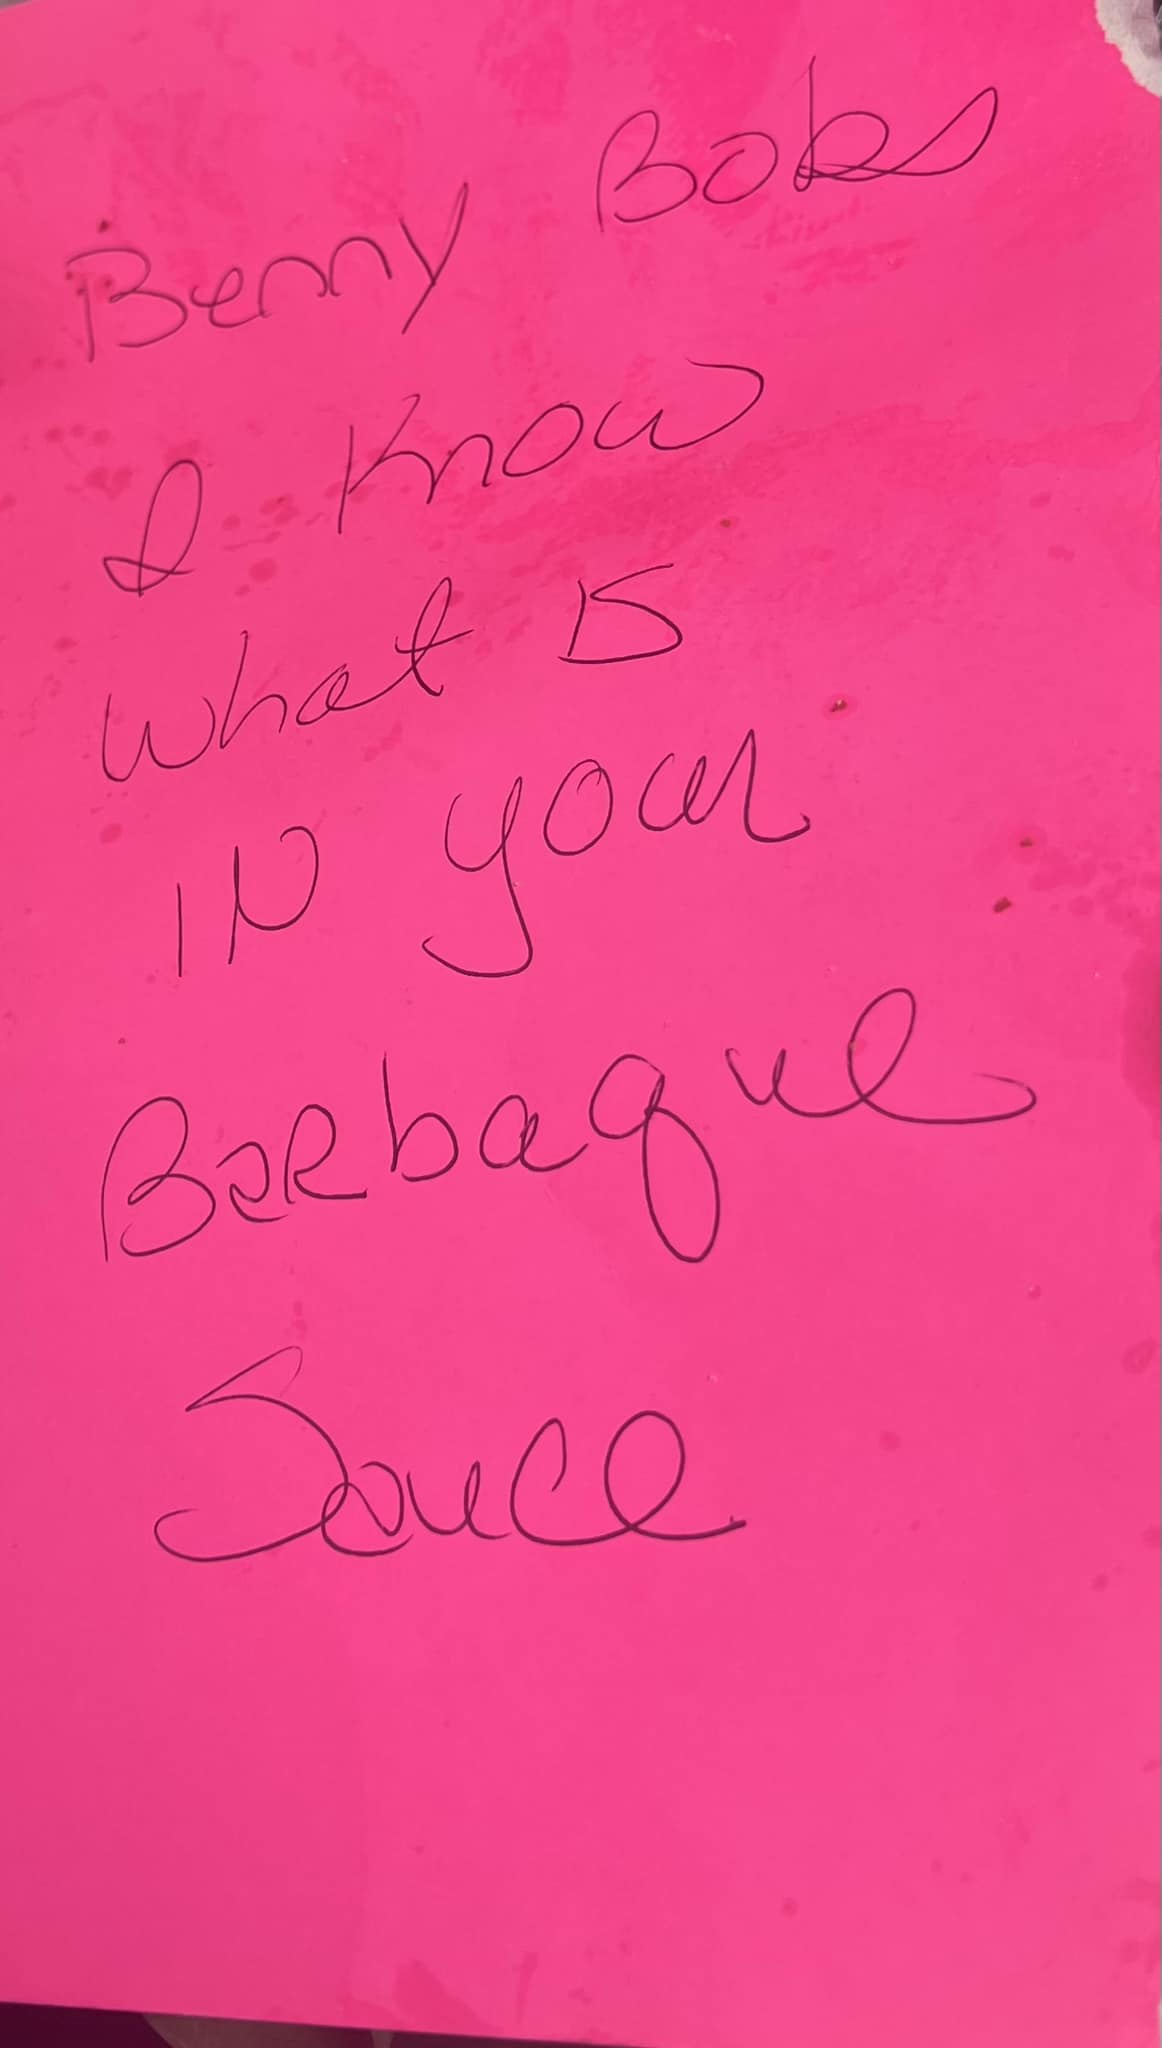 Benny Bobs
I know
what is
IN your
Barbaque
Sauce